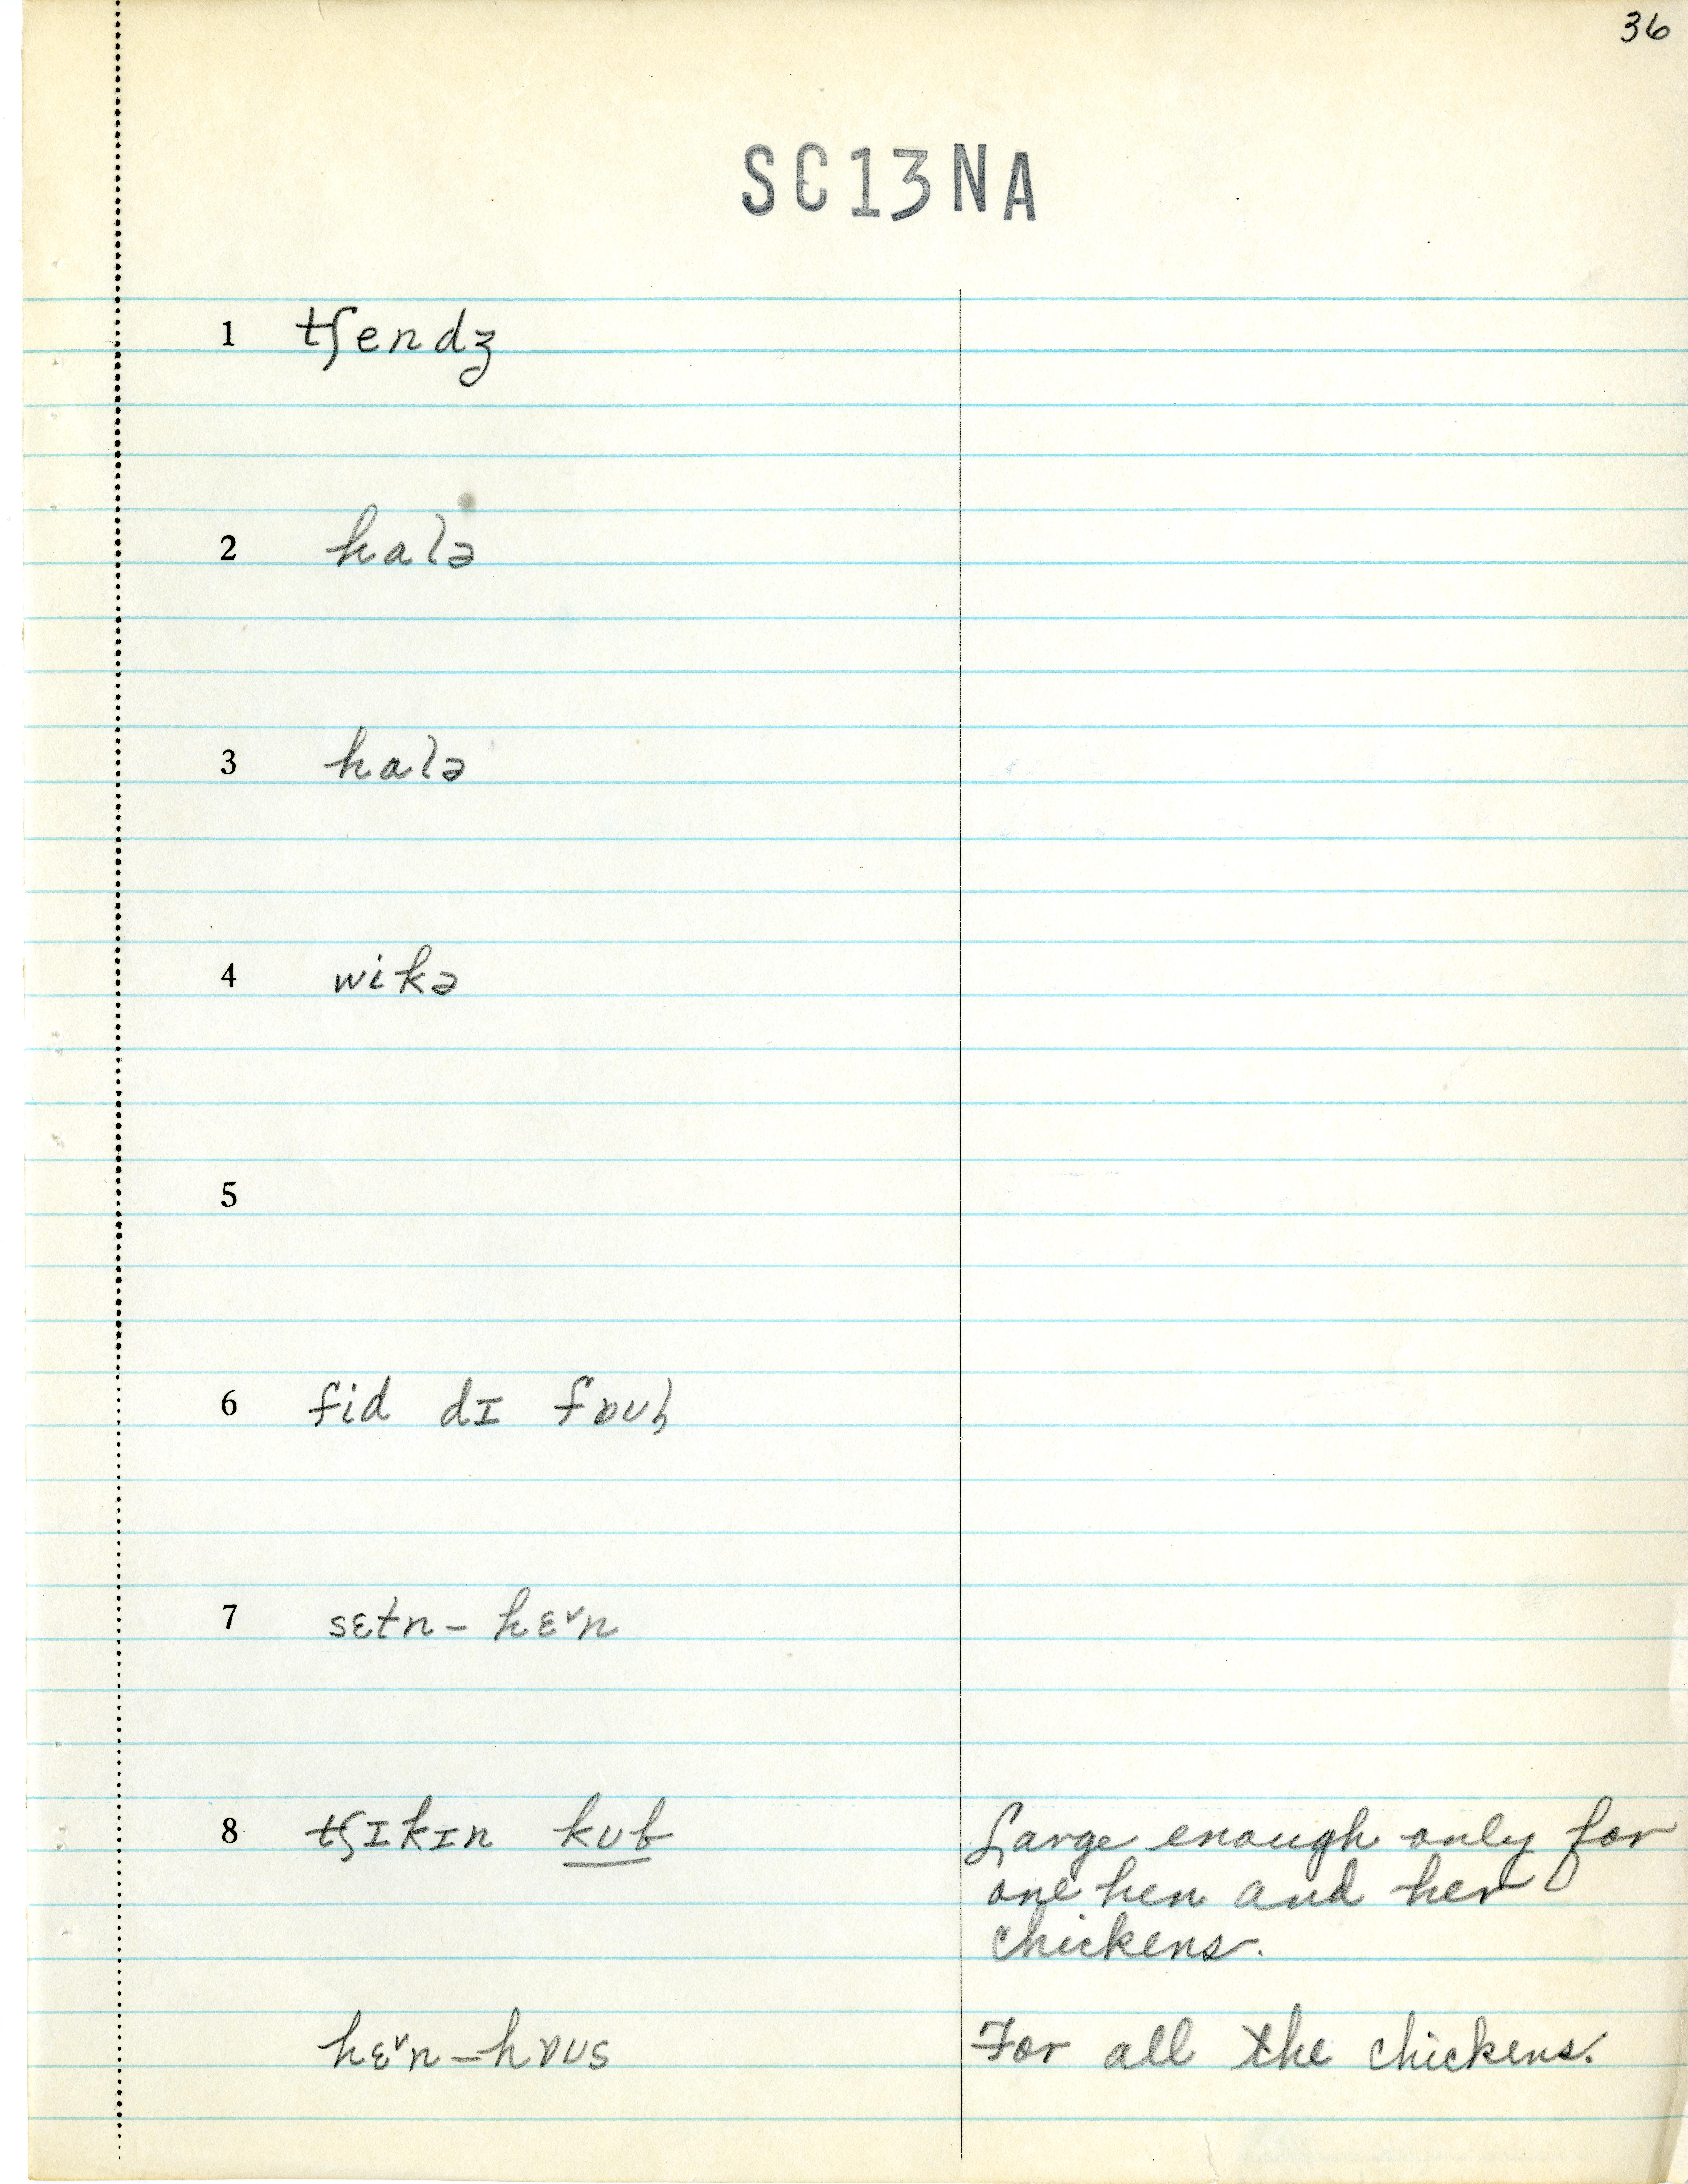 36
SC13NA
1 tʃendʒ
2 halə
3 halə
4 wikə
5
6 fid dɪ fɒʊl
7 sɛtn - hɛ˅n
8 tʃɪkɪn kʊb Large enough only for
one hen and her
chickens.
hɛ˅n - hɒʊs For all the chickens.